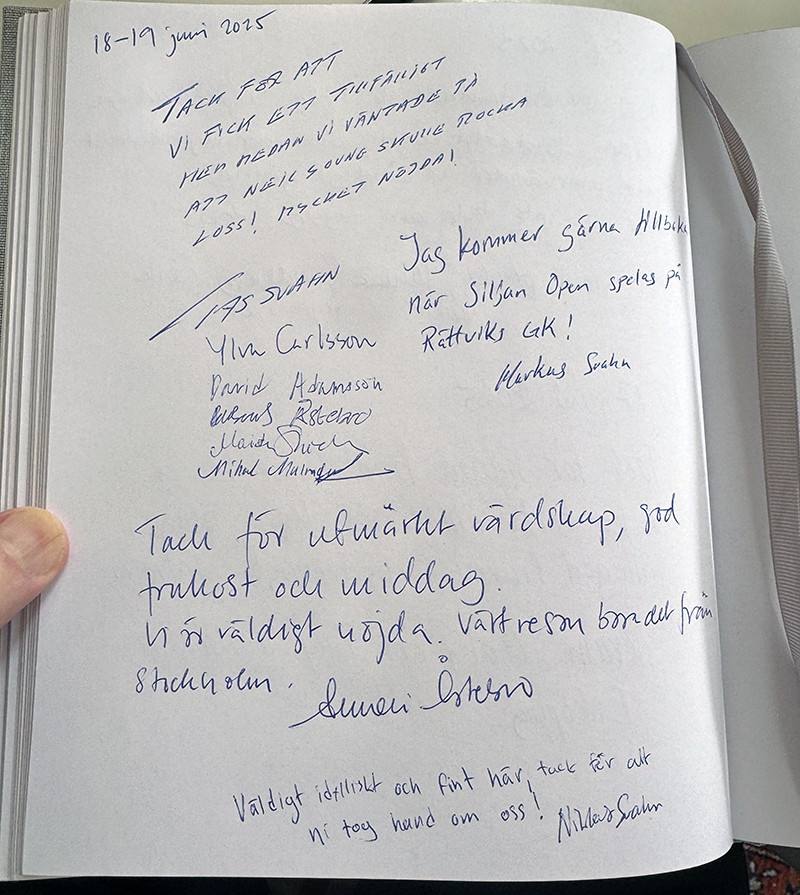 18-19 juni 2025
TACK FÖR ATT
VI FICK ETT TILLFÄLLIGT
HEM MEDAN VI VÄNTADE PÅ
ATT NEIL YOUNG SKULLE ROCKA
LOSS! MYCKET NÖJDA!
SVAHN
Ylva Carlsson
David Adamsson
Jag kommer gärna tillbaka
när Siljan Open spelas på
Rättviks GK!
Markus Svahn
Tack för utmärkt värdskap, god
frukost och middag.
Vi är väldigt nöjda. Värt resan bara det från
Stockholm.
Väldigt idylliskt och fint här, tack för att
ni tog hand om oss!
Niklas Svahn